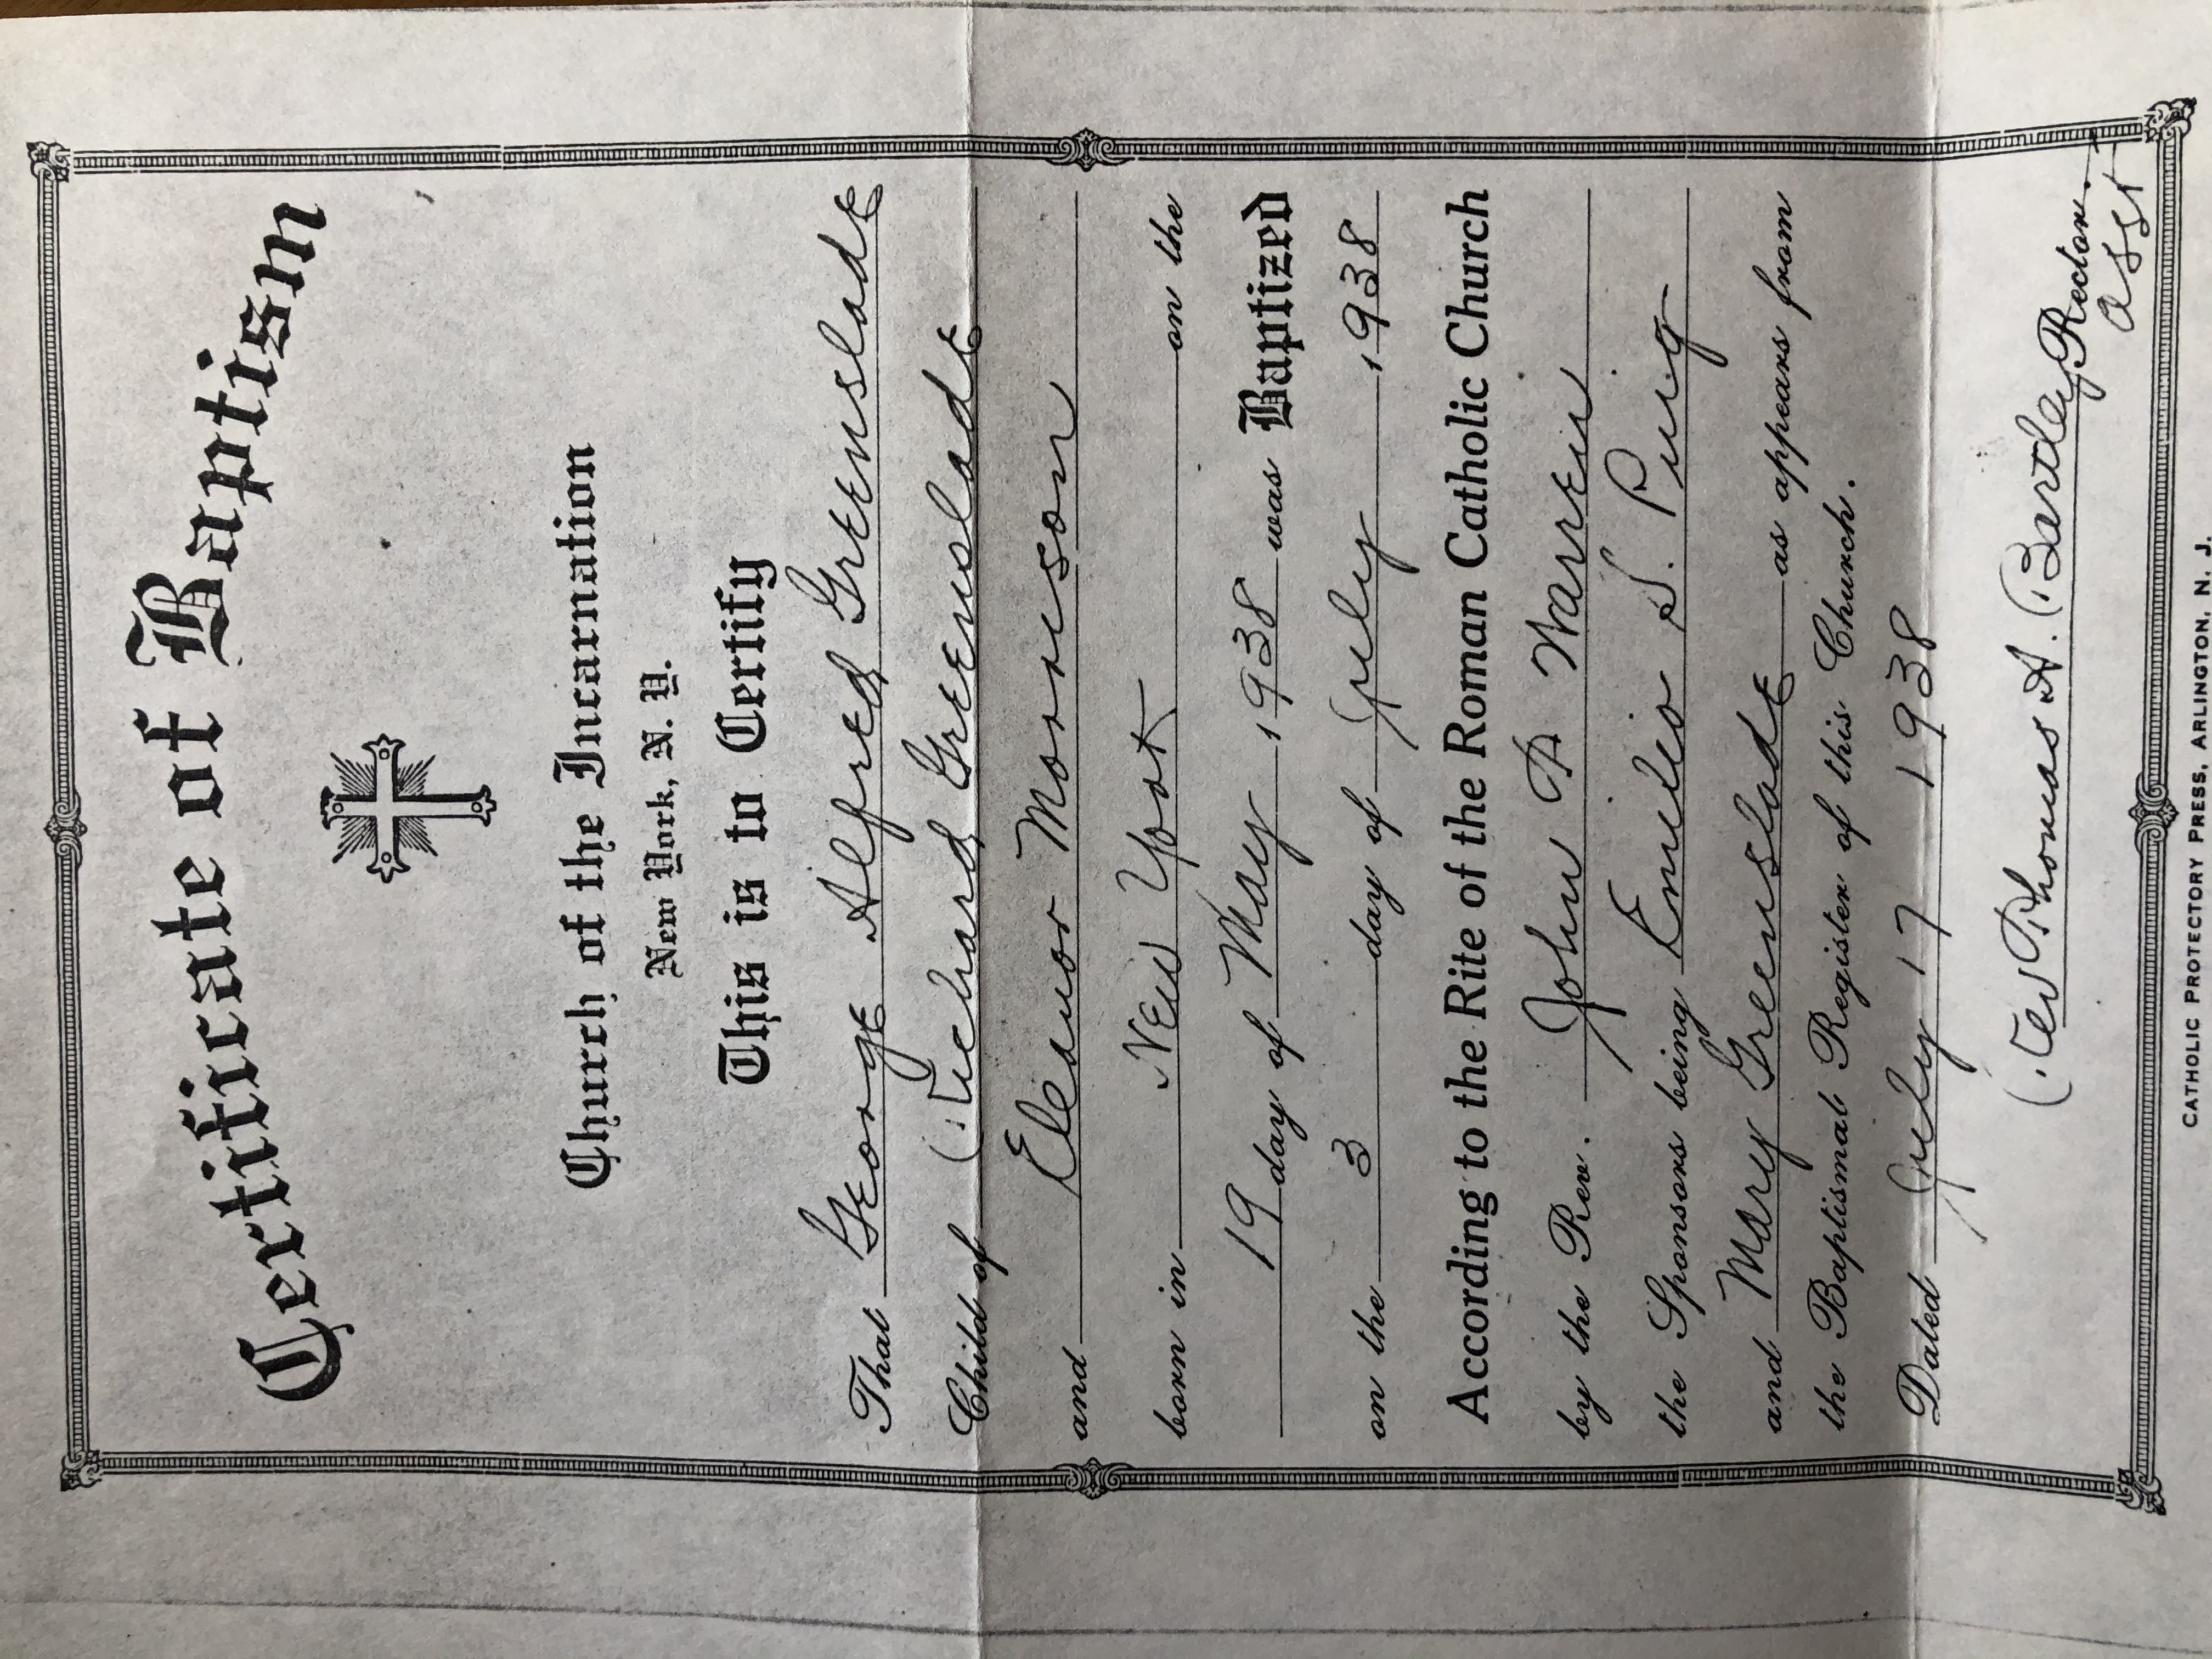 Certificate of Baptism
Church of the Incarnation
New York, N. Y.
This is to Certify
That George Alfred Greenslade
Child of Richard Greenslade
and Eleanor Morrison
born in New York on the
19 day of May 1938 was Baptized
on the 3 day of July 1938
According to the Rite of the Roman Catholic Church
by the Rev. John Warren
the Sponsors being Emilio S. Puig
and Mary Greenslade as appears from
the Baptismal Register of this Church.
Dated July 17 1938
Rev Thomas A. Bartley Rector.
Asst
CATHOLIC PROTECTORY PRESS, ARLINGTON, N. J.